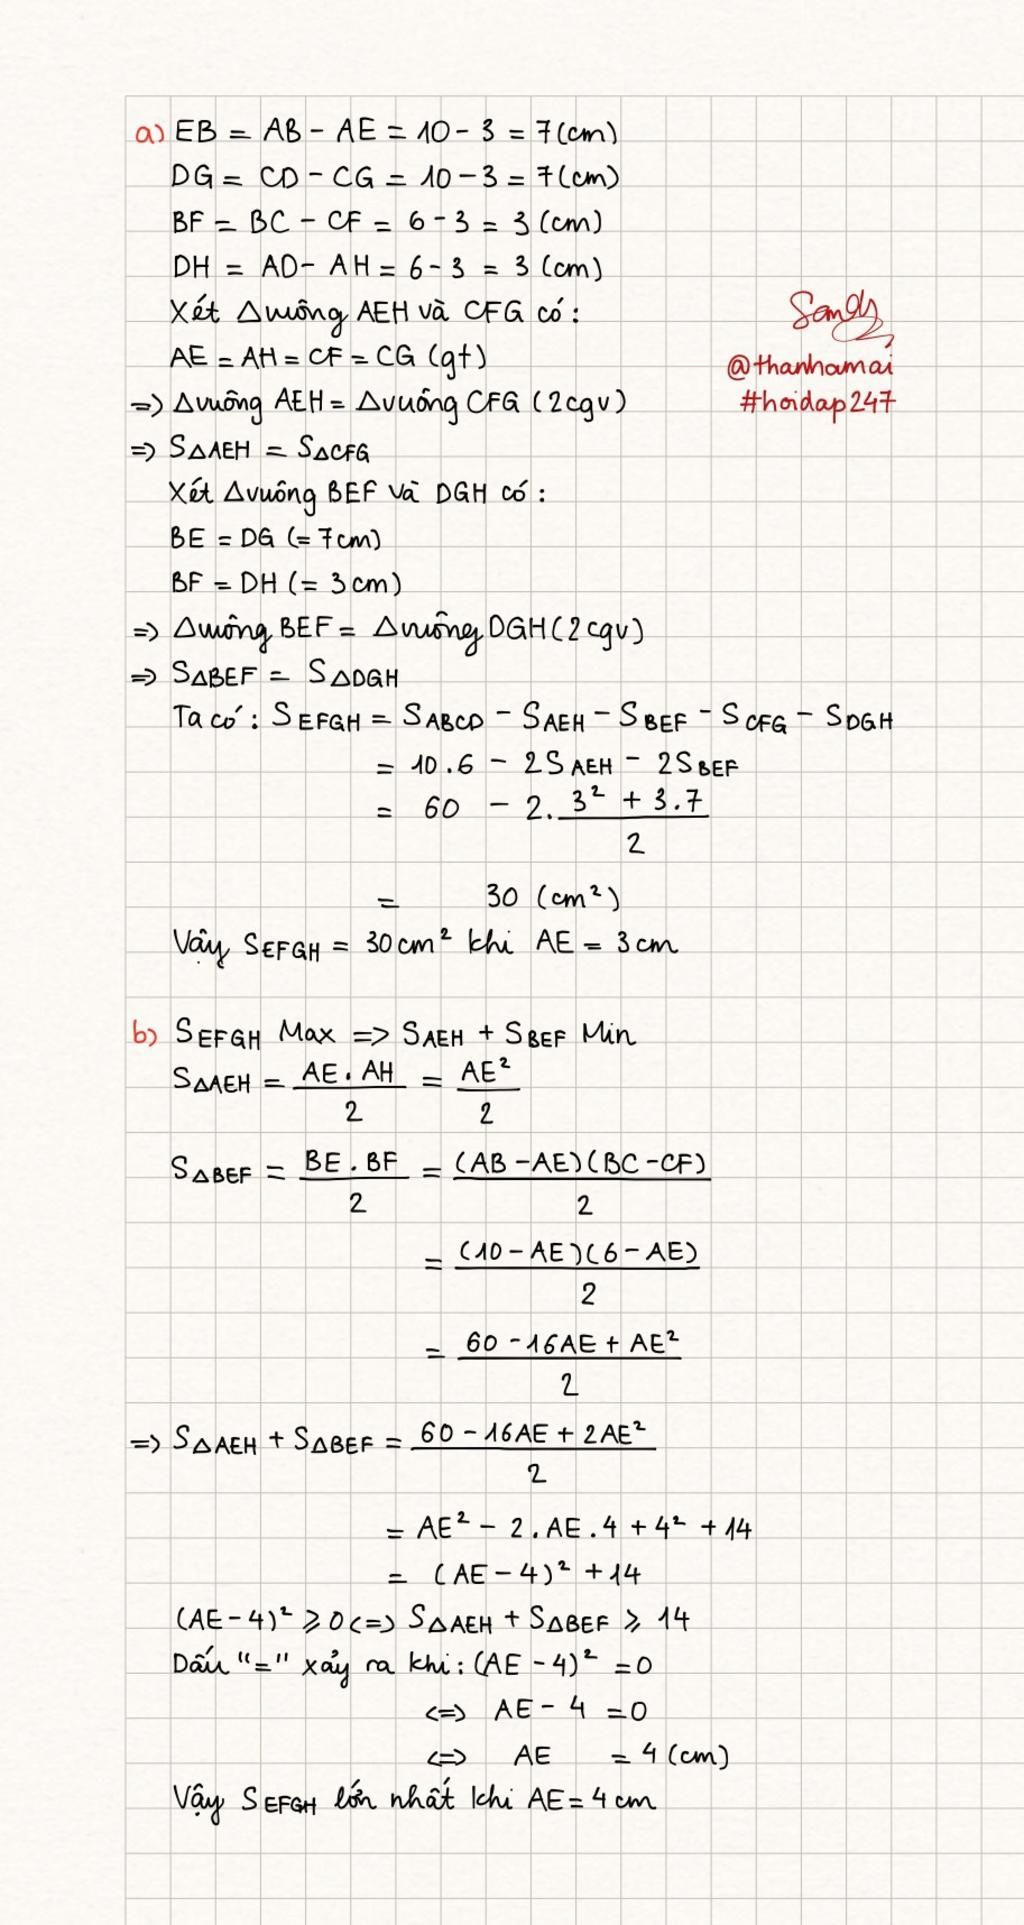 a) EB = AB - AE = 10 - 3 = 7 (cm)
DG = CD - CG = 10 - 3 = 7 (cm)
BF = BC - CF = 6 - 3 = 3 (cm)
DH = AD - AH = 6 - 3 = 3 (cm)
Xét Δvuông AEH và CFG có:
AE = AH = CF = CG (gt)
=> Δvuông AEH = Δvuông CFG (2cgv)
=> SΔAEH = SΔCFG
Sandy
@thanhamai
#hoidap247
Xét Δvuông BEF và DGH có:
BE = DG (= 7cm)
BF = DH (= 3cm)
=> Δvuông BEF = Δvuông DGH (2cgv)
=> SΔBEF = SΔDGH
Ta có: SEFGH = SABCD - SAEH - SBEF - SCFG - SDGH
= 10.6 - 2SAEH - 2SBEF
= 60 - 2. (3² + 3.7)/2
= 30 (cm²)
Vậy SEFGH = 30cm² khi AE = 3cm
b) SEFGH Max => SAEH + SBEF Min
SΔAEH = (AE . AH)/2 = AE²/2
SΔBEF = (BE . BF)/2 = (AB - AE)(BC - CF)/2
= (10 - AE)(6 - AE)/2
= (60 - 16AE + AE²)/2
=> SΔAEH + SΔBEF = (60 - 16AE + 2AE²)/2
= AE² - 2.AE.4 + 4² + 14
= (AE - 4)² + 14
(AE - 4)² ⩾ 0 <=> SΔAEH + SΔBEF ⩾ 14
Dấu "=" xảy ra khi: (AE - 4)² = 0
<=> AE - 4 = 0
<=> AE = 4 (cm)
Vậy SEFGH lớn nhất khi AE = 4cm